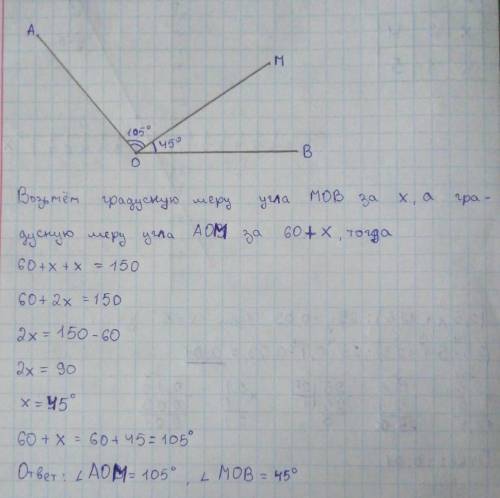 A
M
105°
45°
O
B
Возьмём градусную меру угла MOB за x, а гра-
дусную меру угла AOM за 60+x, тогда
60+x+x = 150
60+2x = 150
2x = 150-60
2x = 90
x = 45°
60+x = 60+45 = 105°
Ответ: ∠AOM = 105°, ∠MOB = 45°